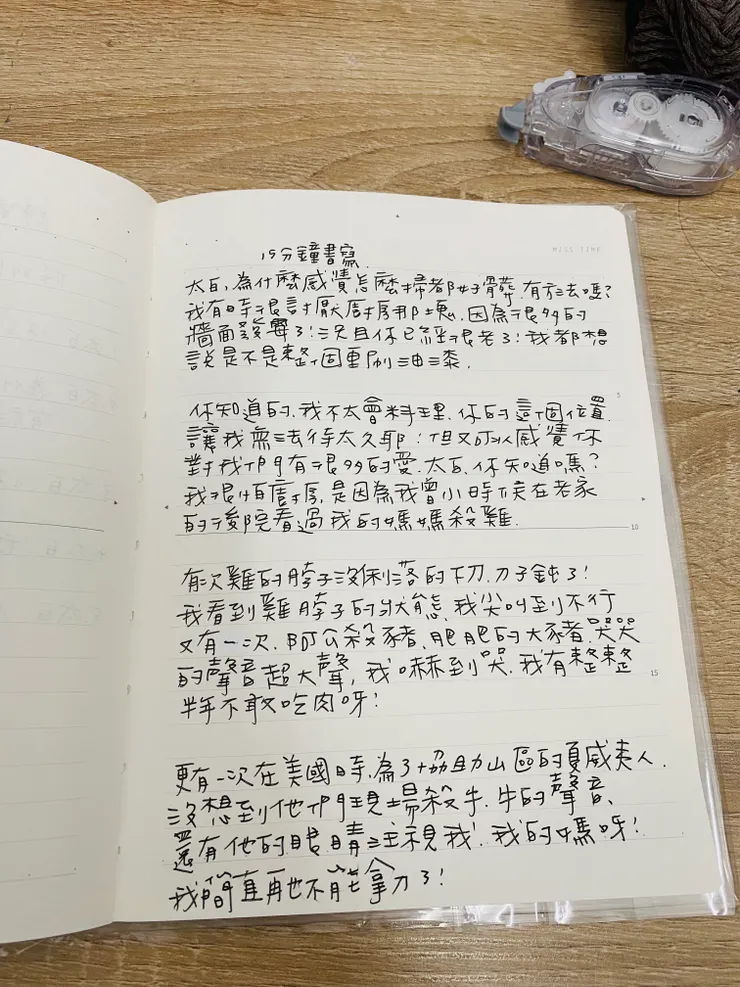 15分鐘書寫.
太白,為什麼感覺怎麼掃都好髒.有方法嗎?
我有時很討厭廚房那塊.因為很多的
牆面發霉了!況且你已經很老了!我都想
說是不是整個重刷油漆.
你知道的.我不太會料理.你的這個位置
讓我無法待太久耶!但又可以感覺你
對我們有很多的愛.太白.你知道嗎?
我很怕廚房.是因為我曾小時候在老家
的後院看過我的媽媽殺雞.
有次雞的脖子沒俐落的切.刀子鈍了!
我看到雞脖子的狀態.我尖叫到不行
又有一次.阿公殺豬、肥肥的大豬.哭哭
的聲音超大聲,我嚇到哭.我有整整
半年不敢吃肉呀!
更有一次在美國時.為了協助山區的夏威夷人.
沒想到他們現場殺牛.牛的聲音、
還有他的眼睛注視我!我的媽呀!
我簡直再也不能拿刀了!
5
10
15